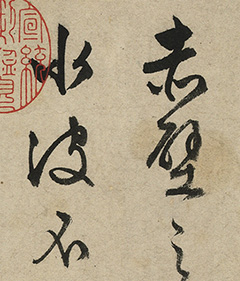 赤壁之
水波不